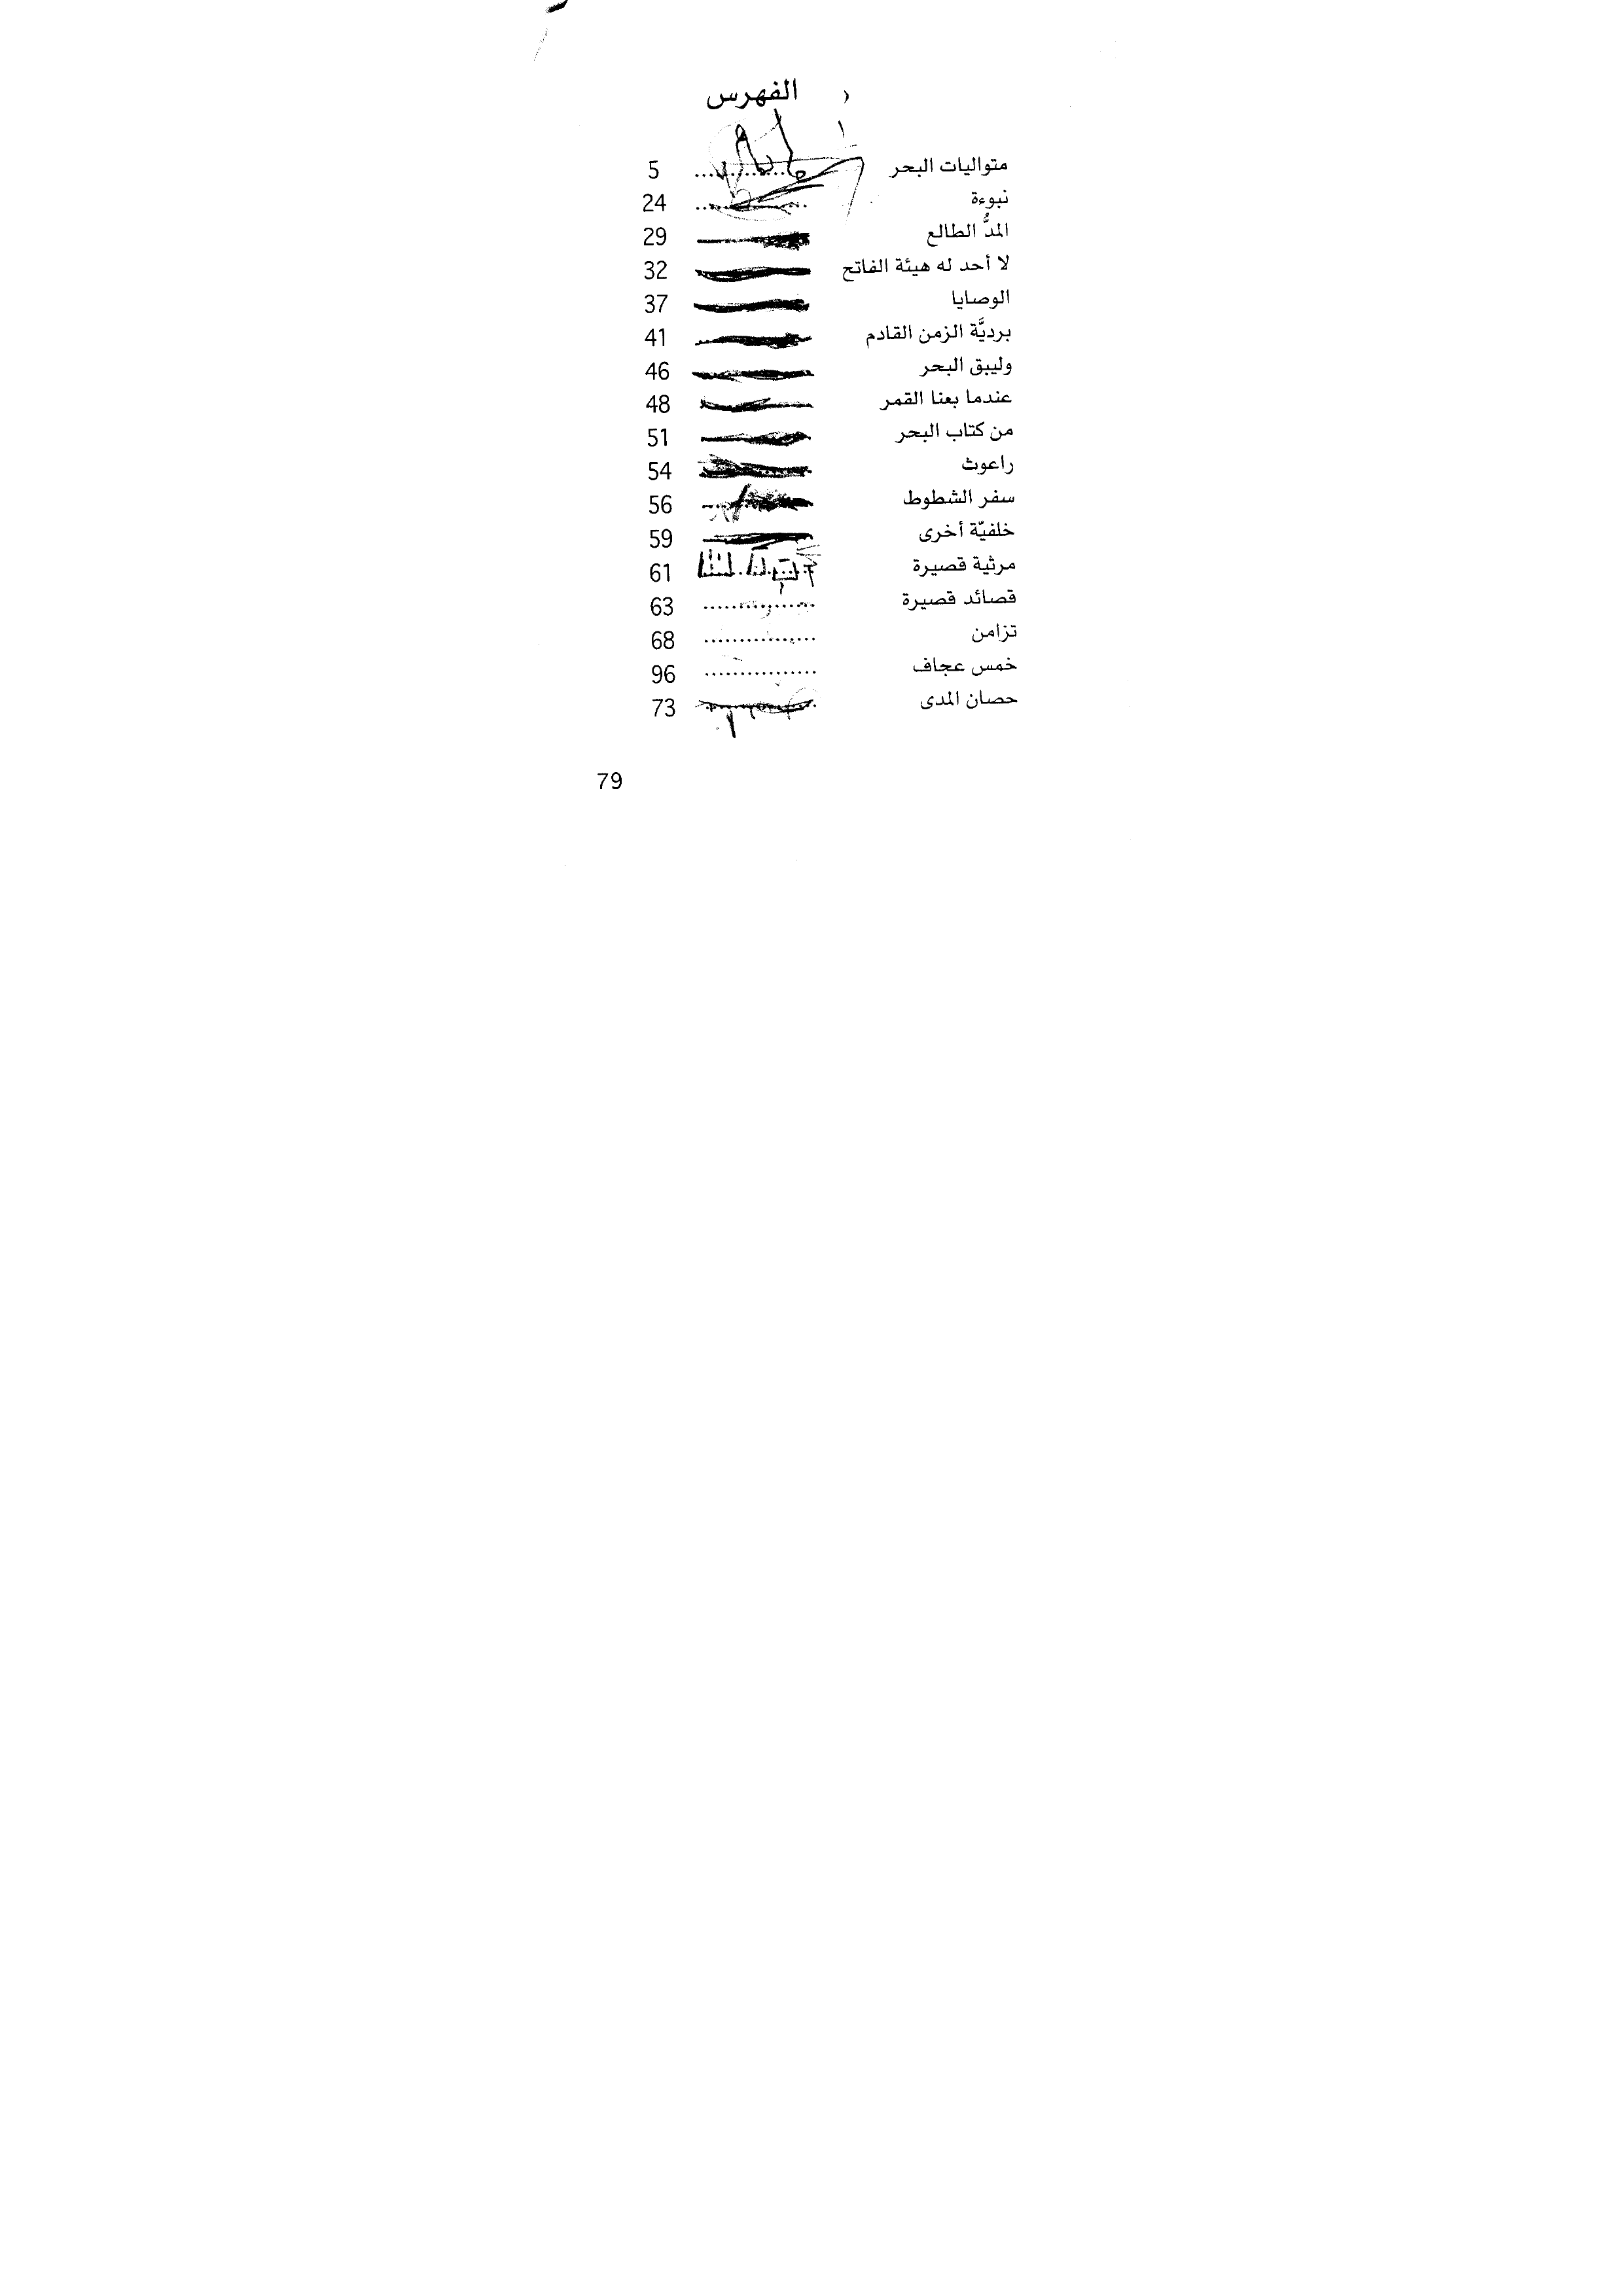 الفهرس
متواليات البحر ................ 5
نبوءة ................ 24
المدُّ الطالع 29
لا أحد له هيئة الفاتح 32
الوصايا 37
برديَّة الزمن القادم 41
وليبق البحر 46
عندما بعنا القمر 48
من كتاب البحر 51
راعوث 54
سفر الشطوط 56
خلفيّة أخرى 59
مرثية قصيرة 61
قصائد قصيرة ................ 63
تزامن ................ 68
خمس عجاف ................ 96
حصان المدى 73
79